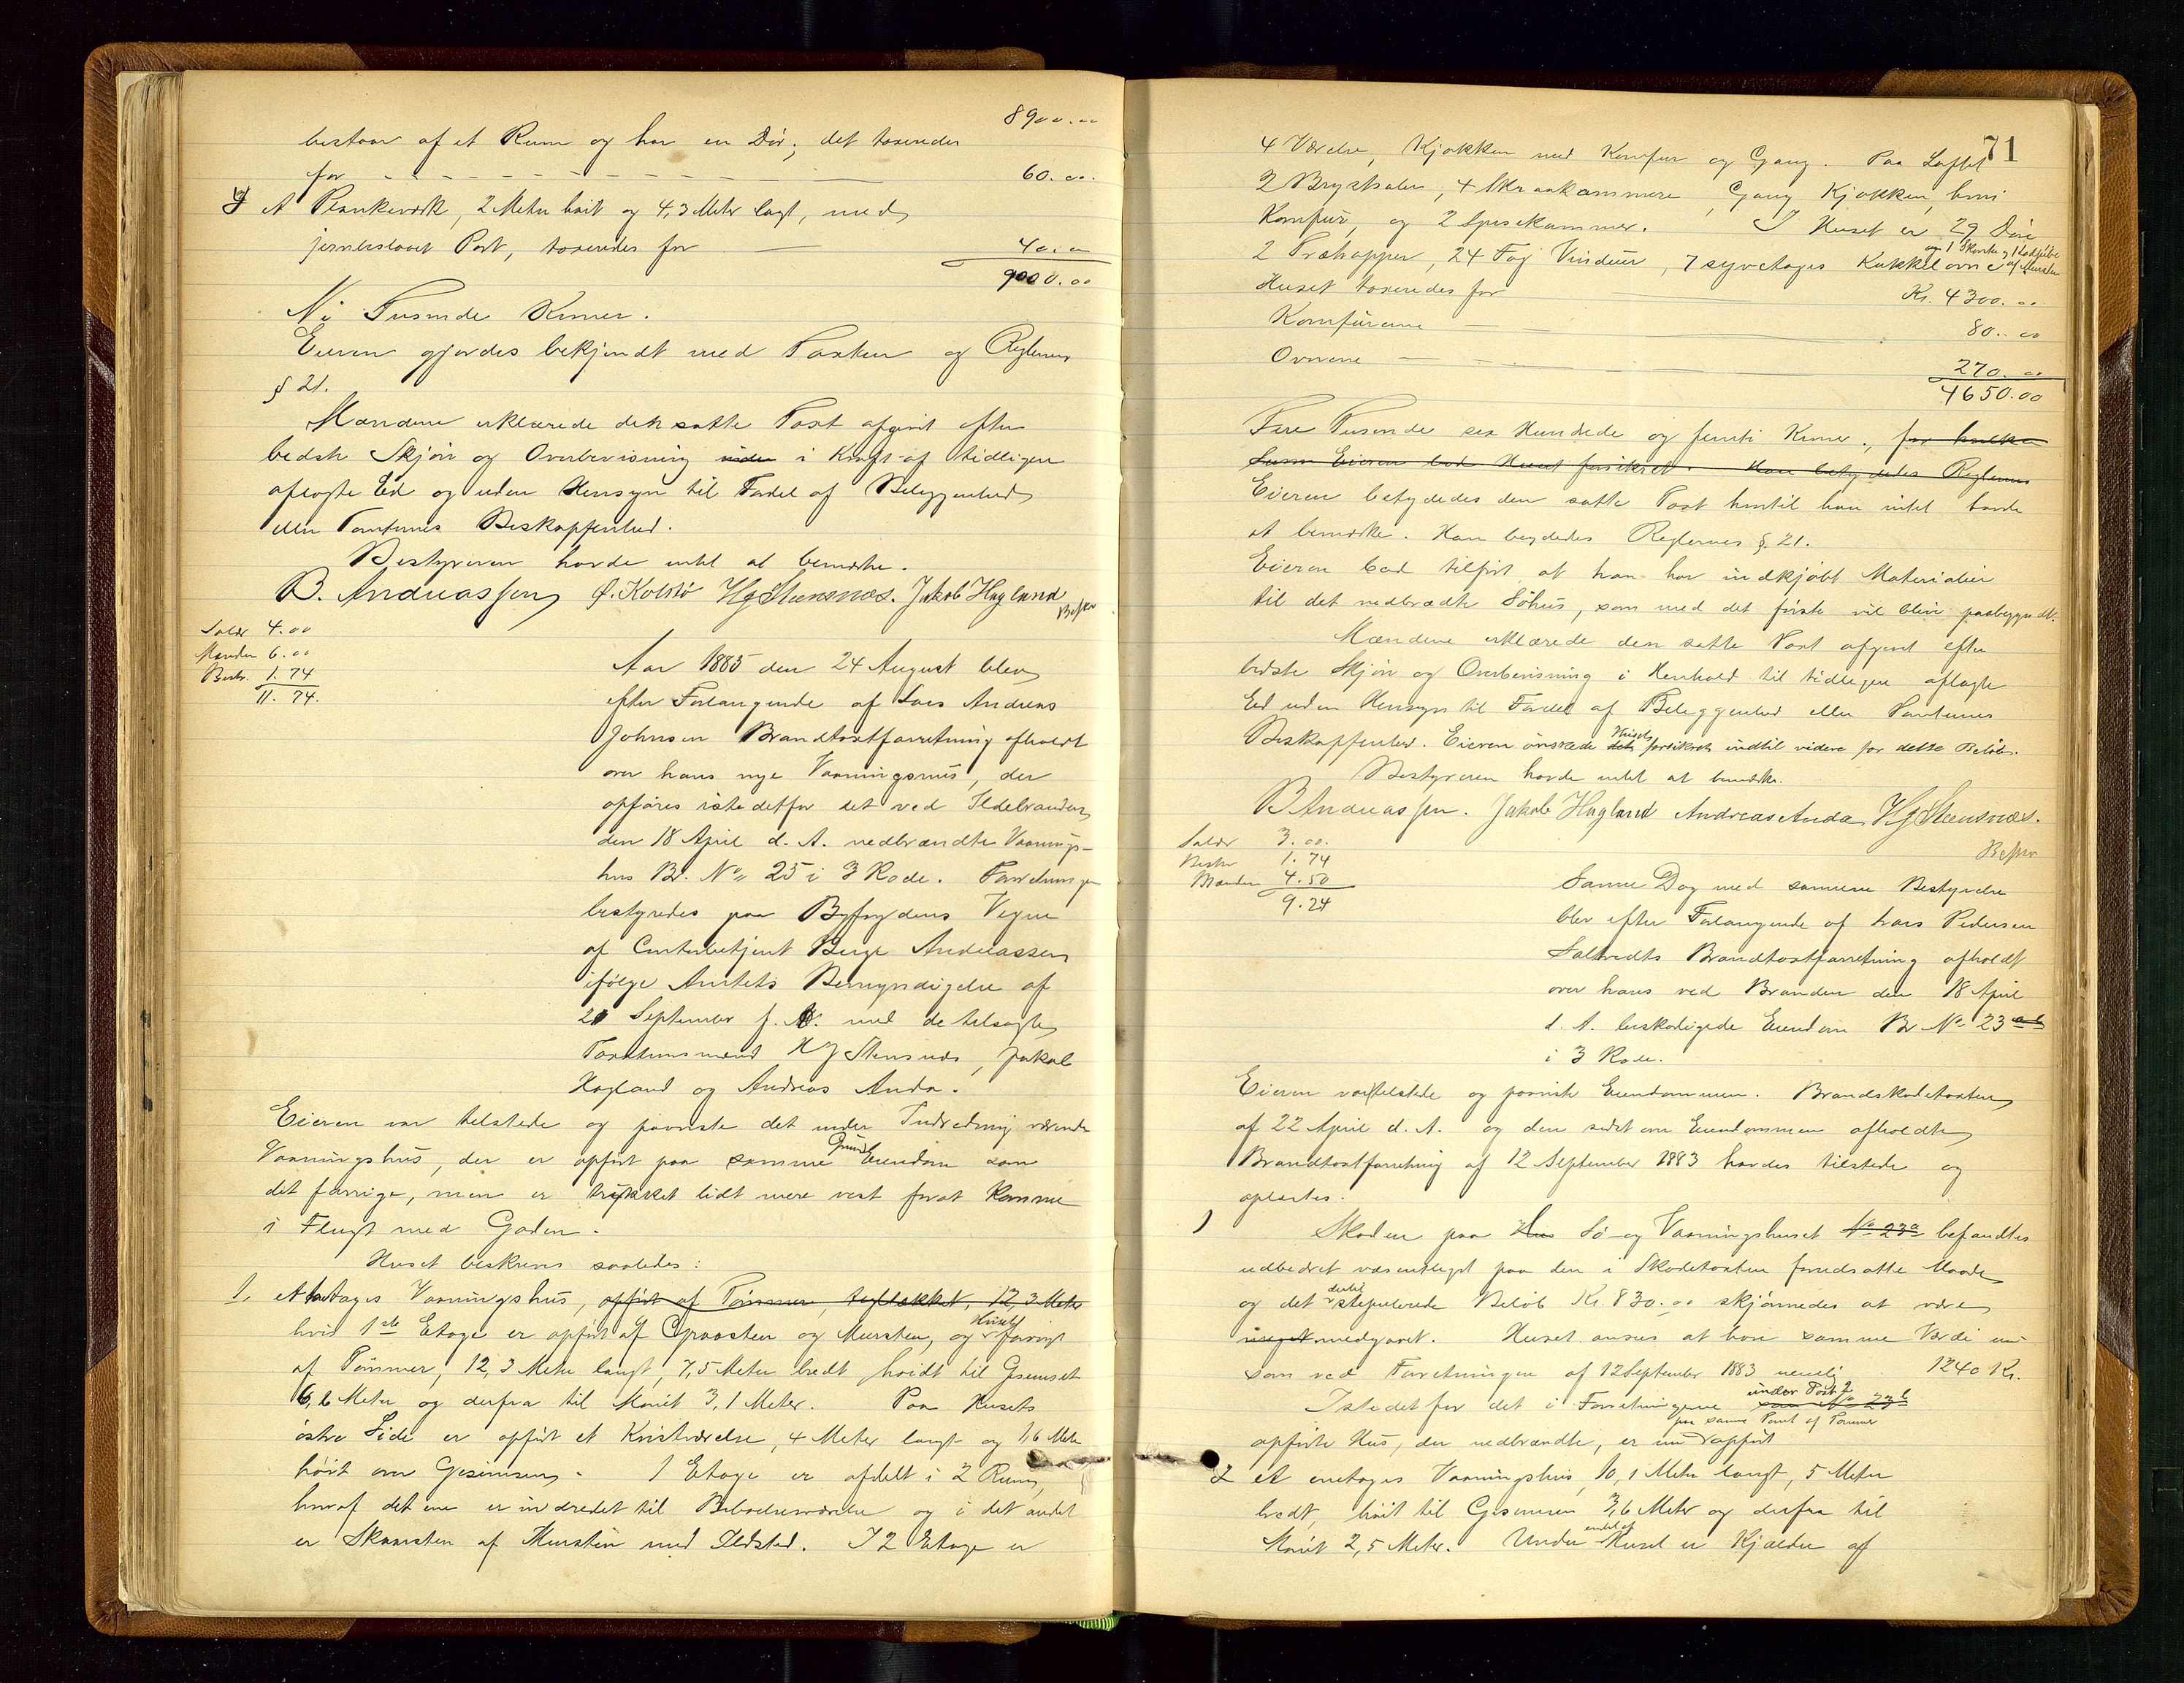 8900.00
bestaar af et Rum og har en Dør; det taxeredes
for 60.00.
g et Plankeværk, 2 Meter høit og 4,3 Meter langt, med
jernbeslaaet Port, taxeredes for 40.00
9000.00
Ni Tusinde Kroner.
Eieren gjordes bekjendt med Taxten og Reglernes
§ 21.
Mændene erklærede den satte Taxt afgivet efter
bedste Skjøn og Overbevisning i Kraft af tidligere
aflagte Ed og uden Hensyn til Fordel af Beliggenhed
eller Tomternes Beskaffenhed.
Bestyreren havde intet at bemærke.
B. Andreassen Ø. Kolstø HJ Stensnæs. Jakob Hagland
Salær 4.00
Mænden 6.00
Bestr. 1.74
11.74.
Aar 1885 den 24 August blev
efter Forlangende af Lars Andreas
Johnsen Brandtaxtforretning afholdt
over hans nye Vaaningshus, der
opføres istedetfor det ved Ildebranden
den 18 April d. A. nedbrændte Vaanings-
hus Br. No 25 i 3 Rode. Forretningen
bestyredes paa Byfogdens Vegne
af Contorbetjent Berge Andreassen
ifølge Amtets Bemyndigelse af
20 September f. A. med de tilsagte
Taxtationsmænd HJ Stensnæs, Jakob
Hagland og Andreas Anda.
Eieren var tilstede og paaviste det under Indredning værende
Vaaningshus, der er opført paa samme Grund Eiendom som
det forrige, men er trukket lidt mere vest forat komme
i Flugt med Gaden.
Huset beskrives saaledes:
1. et toetages Vaaningshus, opført af Tømmer, teglækket, 12,3 Meter
hvis 1ste Etage er opført af Graasten og Mursten, og Huset forøvrigt
af Tømmer, 12,3 Meter langt, 7,5 Meter bredt høidt til Gesimset
6,6 Meter og derfra til Mønet 3,1 Meter. Paa Husets
østre Side er opført et Kvistværelse, 4 Meter langt og 1,6 Meter
høit over Gesimsen. 1 Etage er afdelt i 2 Rum,
hvoraf det ene er indredet til Beboelsesværelse og i det andet
er Skorsten af Mursten med Ildsted. I 2 Etage er
71
4 Værelser, Kjøkken med Komfur og Gang. Paa Loftet
2 Brystsaler, 4 Skraakammere, Gang Kjøkken, hvori
Komfur, og 2 Spisekammer. I Huset er 29 Døre
2 Trætrapper, 24 Fag Vinduer, 7 syvetages Kakkelovne
Huset taxeredes for Kr. 4300.00
Komfurerne 80.00
Ovnene 270.00
4650.00
Fire Tusinde sex Hundrede og femti Kroner., for hvilken
Sum Eieren bad Huset forsikret. Han betydedes Reglernes
Eieren betydedes den satte Taxt hvortil han intet havde
at bemærke. Han betydedes Reglernes §. 21.
Eieren bad tilført at han har indkjøbt Materialier
til det nedbrændte Søhus, som med det første vil blive paabegyndt.
Mændene erklærede den satte Taxt afgivet efter
bedste Skjøn og Overbevisning i Henhold til tidligere aflagte
Ed uden Hensyn til Fordel af Beliggenhed eller Tomternes
Beskaffenhed. Eieren ønskede Huset forsikret indtil videre for dette Beløb.
Bestyreren havde intet at bemærke.
B Andreassen. Jakob Hagland Andreas Anda HJ Stensnæs.
Salær 3.00.
Bestr 1.74
Mænden 4.50
9.24
Samme Dag med samme Bestyrelse
blev efter Forlangende af Lars Pedersen
Saltvedts Brandtaxtforretning afholdt
over hans ved Branden den 18 April
d. A. beskadigede Eiendom Br No 23 ab
i 3 Rode.
Eieren var tilstede og paaviste Eiendommen. Brandskadetaxten
af 22 April d. A. og den sidst over Eiendommen afholdte
Brandtaxtforretning af 12 September 1883 havdes tilstede og
oplæstes.
1 Skaden paa Hus Sø- og Vaaningshuset No 23a befandtes
udbedret væsentligst paa den i Skadetaxten forudsatte Maade
og det derfor stipulerede Beløb Kr 830.00 skjønnedes at være
medgaaet. Huset ansees at have samme Værdi nu
som ved Forretningen af 12 September 1883 nemlig 1240 Kr.
Istedetfor det i Forretningen under Post 2 som No 23b
opførte Hus, der nedbrændte, er nu paa samme Tomt af Tømmer opført
2 et enetages Vaaningshus, 10,1 Meter langt, 5 Meter
bredt, høit til Gesimsen 3,6 Meter og derfra til
Mønet 2,5 Meter. Under endel af Huset er Kjælder af